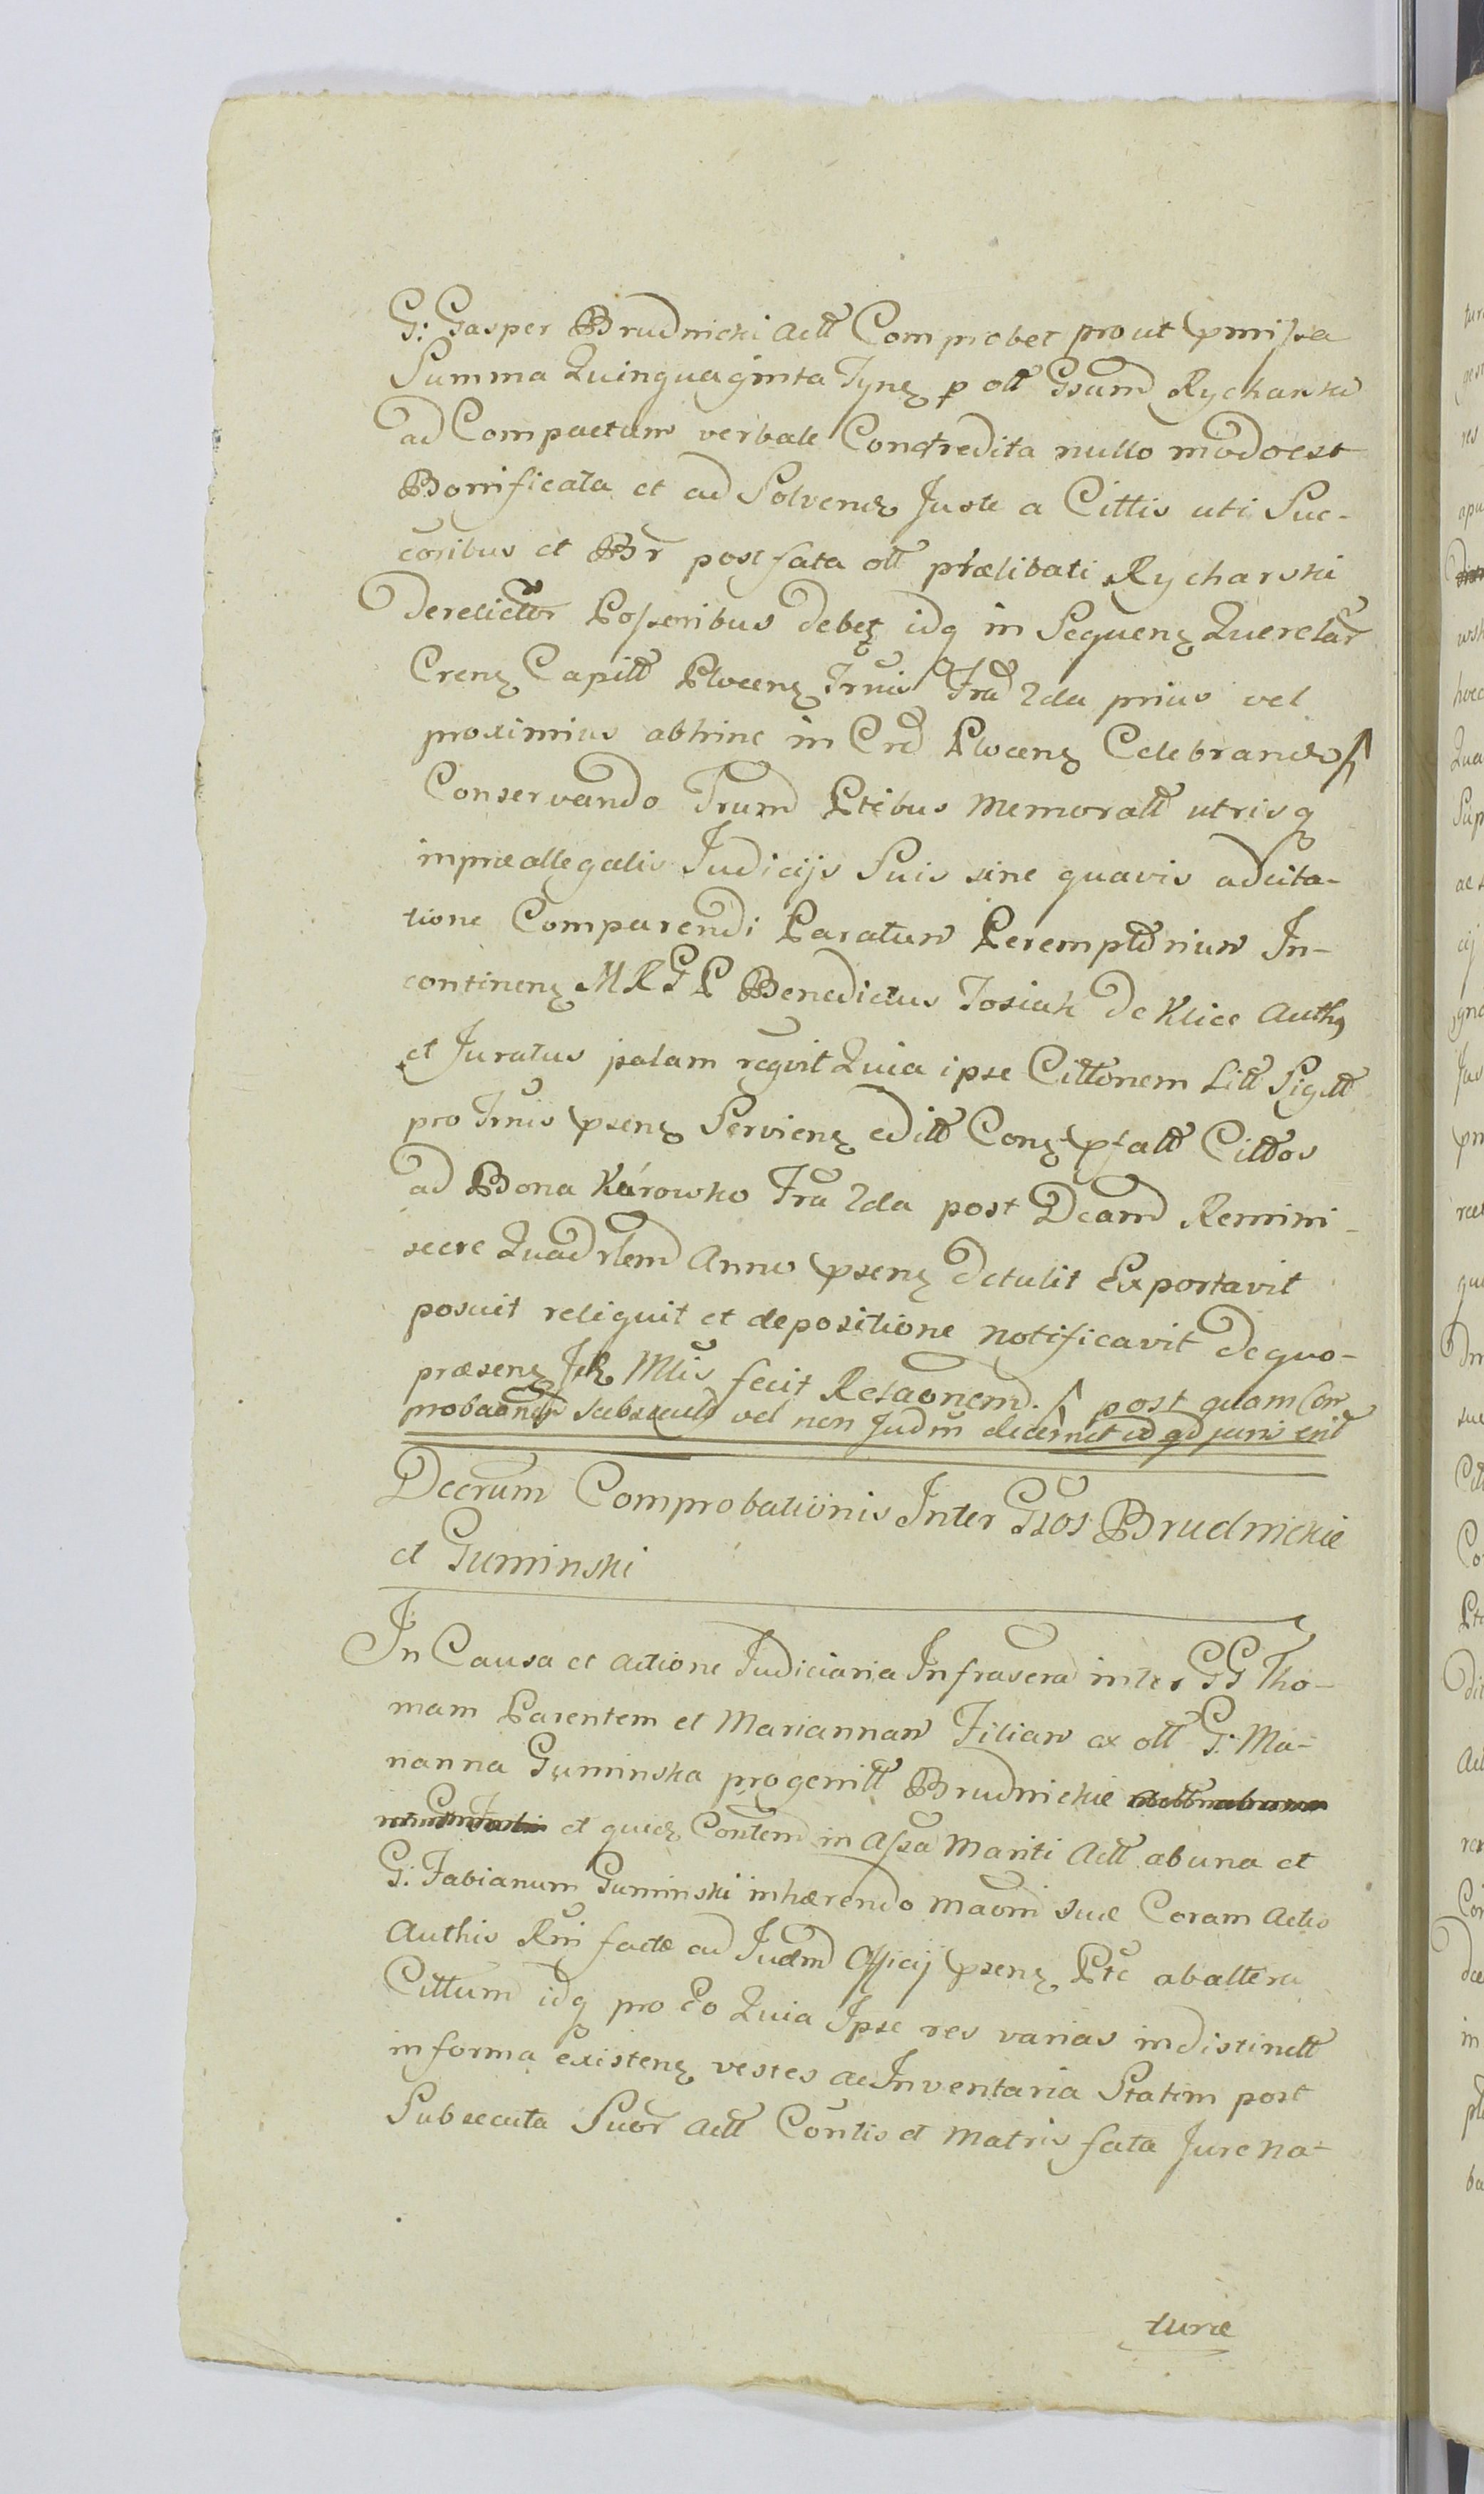 G: Gasper Brudnicki Actt Comprobet prout pmissa
Summa Quinquaginta Tynz p olt Gsum Rycharski
ad Compactum verbale Concredita nullo modo est
Bonificata et ad Solvenđ Juste a Cittis uti Suc-
coribus et Br post fata olt prælibati Rycharski
derelictor Possoribus debez idq in Sequenz Querelar
Crenz Capitt Plocenz Trnis Fra 2da prius vel
proximius abhinc in Crd Plocenz Celebrand
Conservando Trum Ptibus Memoratt utrisq
inpræallegatis Judicijs Suis sine quavis adcita-
tione Comparendi Paratum Peremptorium In-
continenz MRGP Benedictus Tosiak de Klice Auths
et Juratus palam regvit Quia ipse Cittonem Litt Sigtt
pro Trnis psenz Servienz editt Conz pfatt Cittos
ad Bona Karowko Fra 2da post Dcam Remini-
scere Quadrlem Anno psenz detulit Exportavit
posuit reliquit et depositione notificavit de quo-
præsenz JR Mtis fecit Relaonem. post quam Com
probaonem subsecutam vel non Judm decernet id qd juris erit
Decrum Comprobationis Inter Gsos Brudnickie
et Guminski
In Causa et Actione Judiciaria Infrasera inter GG Tho-
mam Parentem et Mariannam Filiam ex olt G: Ma-
rianna Guminska progenitt Brudnickie
et quidz Contem in Assa Mariti Actt ab una et
G: Fabianum Guminski inhærendo maom suæ Coram Actis
Authis Rni factæ ad Judm Officij psenz Pte ab altera
Cittum idq pro Eo Quia Ipse res varias indistinctt
in forma existenz vestes ac Inventaria Statim post
Subsecuta Suor Actt Contis et Matris fata Jure na-
turæ